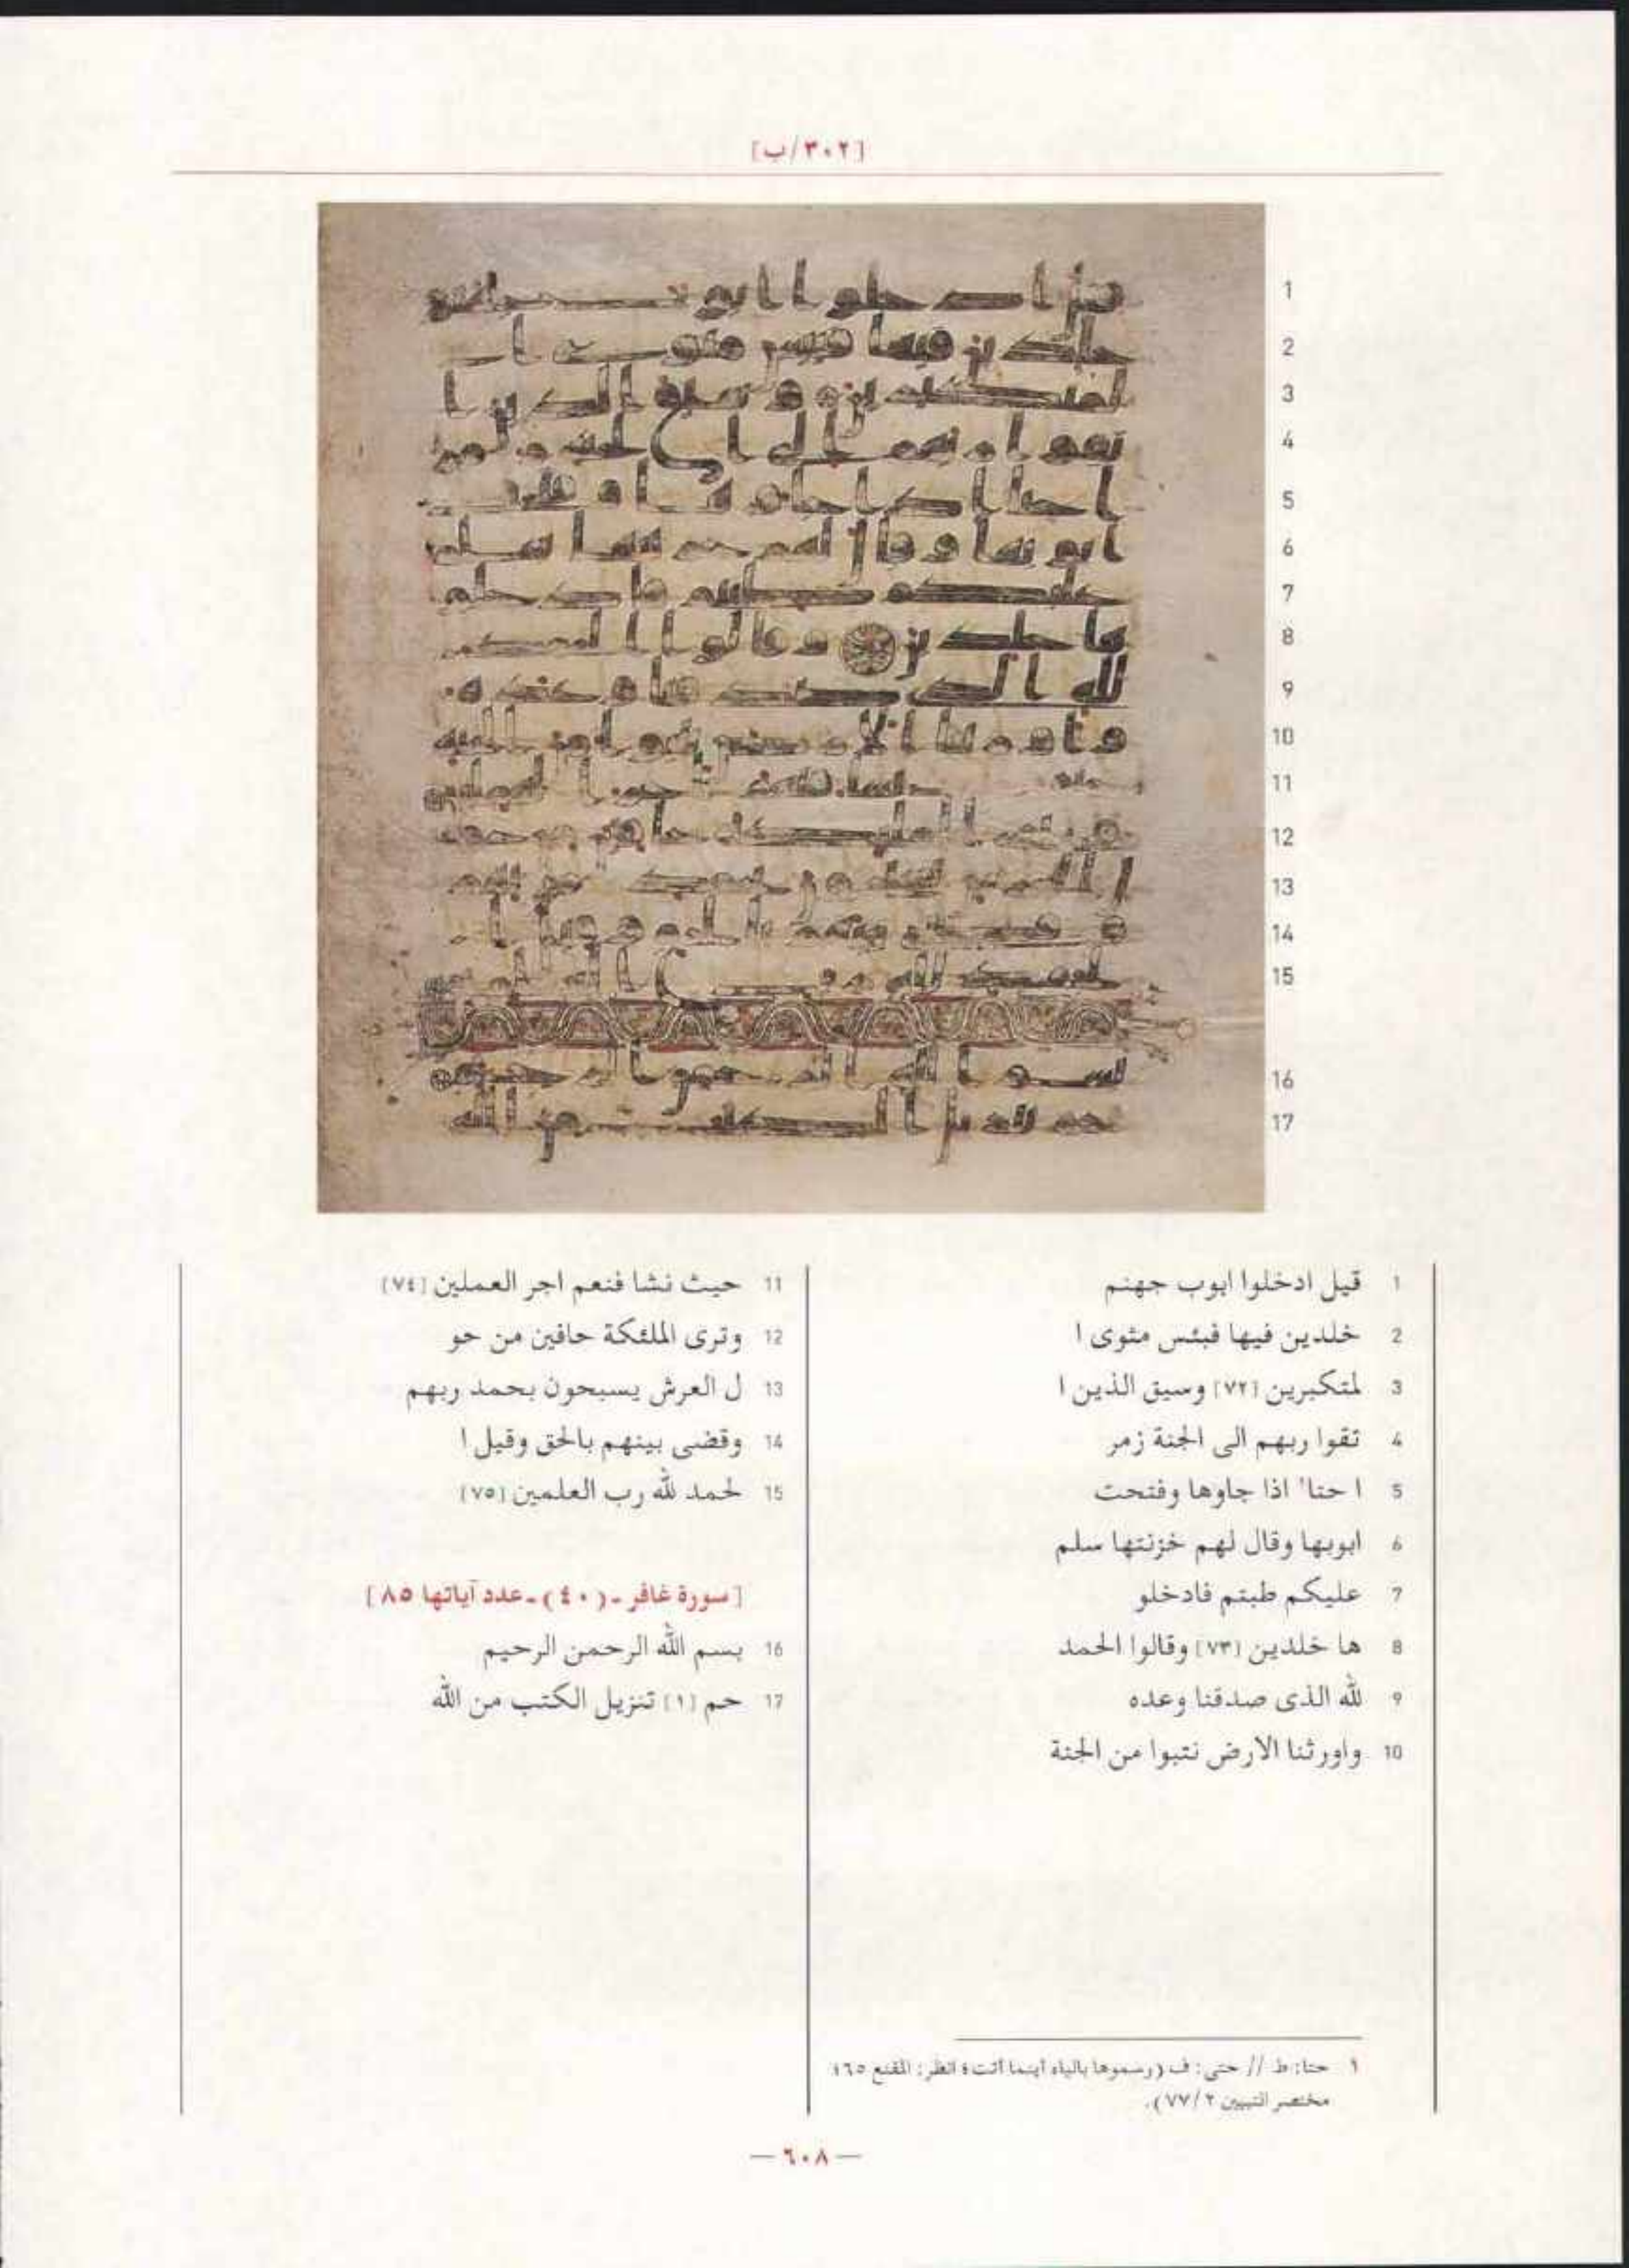 [٣٠٢/ب]
1 قيل ادخلوا ابوب جهنم
2 خلدين فيها فبئس مثوى ا
3 لمتكبرين [٧٢] وسيق الذين ا
4 تقوا ربهم الى الجنة زمر
5 ا حتا¹ اذا جاوها وفتحت
6 ابوبها وقال لهم خزنتها سلم
7 عليكم طبتم فادخلو
8 ها خلدين [٧٣] وقالوا الحمد
9 لله الذى صدقنا وعده
10 واورثنا الارض نتبوا من الجنة
11 حيث نشا فنعم اجر العملين [٧٤]
12 وترى الملئكة حافين من حو
13 ل العرش يسبحون بحمد ربهم
14 وقضى بينهم بالحق وقيل ا
15 لحمد لله رب العلمين [٧٥]
[سورة غافر - (٤٠) - عدد آياتها ٨٥]
16 بسم الله الرحمن الرحيم
17 حم [١] تنزيل الكتب من الله
١ حتا: ط // حتى: ف (رسموها بالياء أينما أتت؛ انظر: المقنع ٦٥؛
مختصر التبيين ٢/ ٧٧).
— ٦٠٨ —